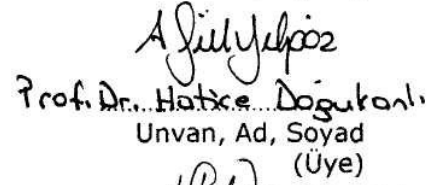 Prof. Dr. Hatice Doğukanlı
Unvan, Ad, Soyad
(Üye)